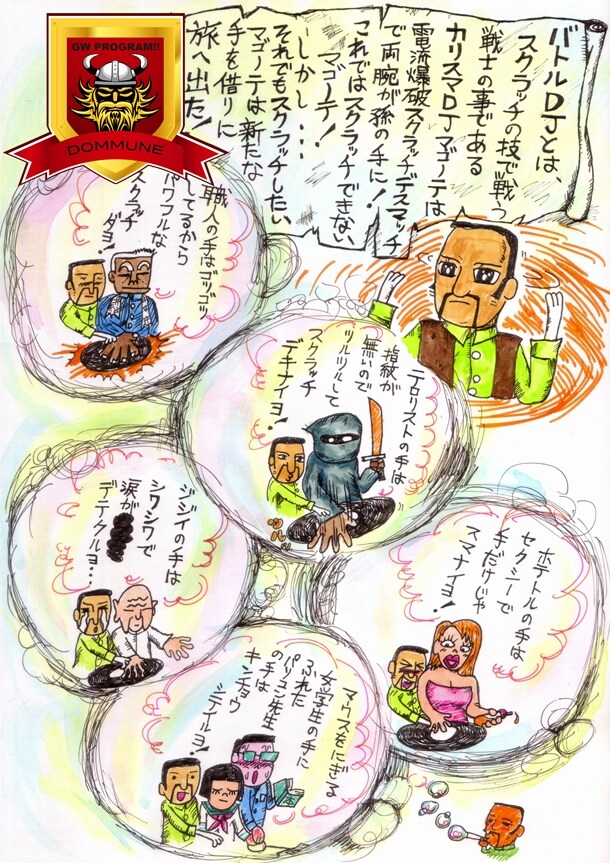 GW PROGRAM!!
DOMMUNE
バトルDJとは、
スクラッチの技で戦う
戦士の事である
カリスマDJマゴノテは
電流爆破スクラッチデスマッチ
で両腕が孫の手に!
これではスクラッチできない
マゴノテ!
しかし・・・
それでもスクラッチしたい
マゴノテは新たな
手を借りに
旅へ出た!
職人の手はゴツゴツ
してるから
パワフルな
スクラッチ
ダヨ!
テロリストの手は
指紋が
無いので
ツルツルして
スクラッチ
デキナイヨ!
ジジイの手は
シワシワで
涙が
デテクルヨ・・・
ホテトルの手は
セクシーで
手だけじゃ
スマナイヨ!
マウスをにぎる
女学生の手に
ふれた
パソコン先生
の手は
キンチョウ
シテイルヨ!